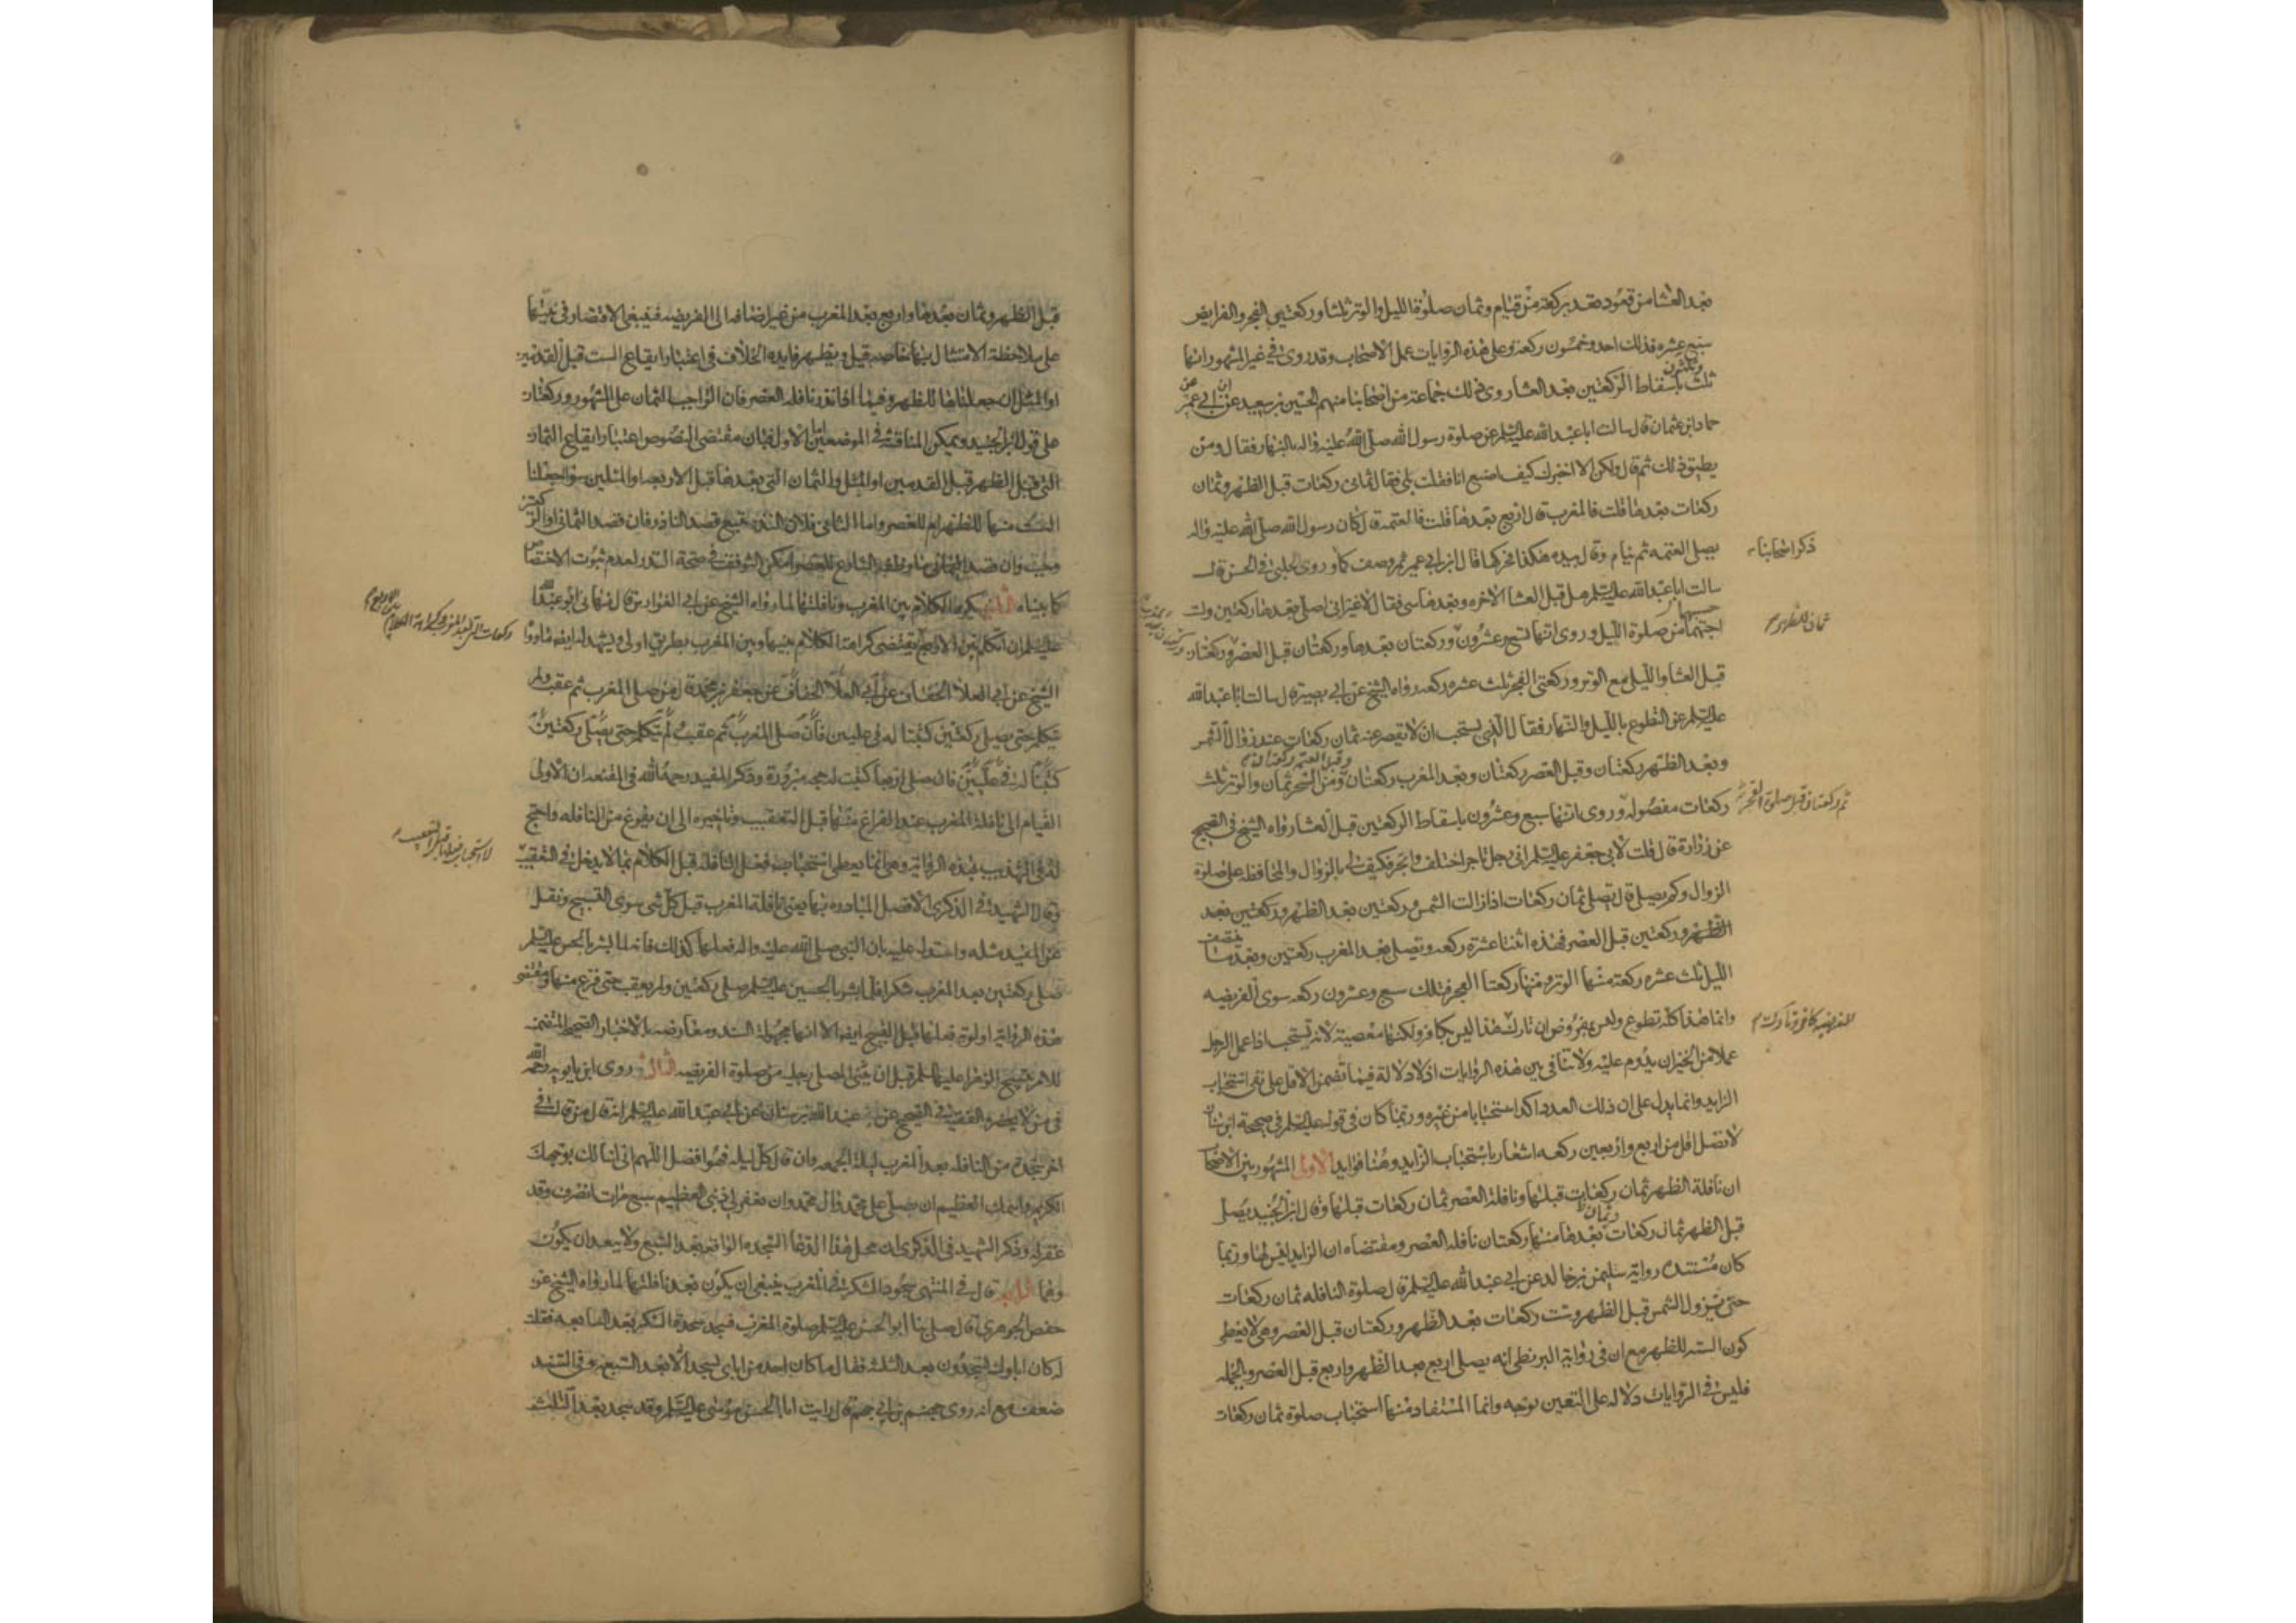 بعد العشا من قعود تعد بركعة من قيام وثمان صلوة الليل والوتر ثلثا وركعتي الفجر والفرايض
سبع عشره فذلك احد وخمسون ركعة وعلى هذه الروايات عمل الاصحاب وقد روى في غير المشهور انها
ثلث وثلثون باسقاط الركعتين بعد العشا روى ذلك جماعة من اصحابنا منهم الحسين بن سعيد عن ابن ابي عمير عن
حماد بن عثمان قال سالت ابا عبد الله عليه السلم عن صلوة رسول الله صلى الله عليه واله بالنهار فقال ومن
يطيق ذلك ثم قال ولكن الا اخبرك كيف اصنع انا فقلت بلى فقال ثماني ركعات قبل الظهر وثمان
ركعات بعدها قلت فالمغرب قال اربع بعدها قلت فالعتمة قال كان رسول الله صلى الله عليه واله
يصلى العتمه ثم ينام وقال بيده هكذا فحركها قال ابن ابي عمير ثم وصف كما ذكر اصحابنا وروى الحلبي في الحسن قال
سالت ابا عبد الله عليه السلم هل قبل العشا الاخره وبعدها شي فقال لا غير اني اصلى بعدها ركعتين ولست
احسبهما من صلوة الليل وروى انها تسع وعشرون ثمان للظهر وركعتان بعدها وركعتان قبل العصر وركعتان
قبل العشا والليل مع الوتر وركعتى الفجر ثلث عشره ركعه رواه الشيخ عن ابي بصير قال سالت ابا عبد الله
عليه السلم عن التطوع بالليل والنهار فقال الذي يستحب ان لا يقصر عنه ثمان ركعات عند زوال الشمس
وبعد الظهر ركعتان وقبل العصر ركعتان وبعد المغرب ركعتان وقبل العتمه ركعتان ومن السحر ثمان والوتر ثلث
ركعات مفصوله ثم ركعتان قبل صلوة الفجر وروى انها سبع وعشرون باسقاط الركعتين قبل العشا رواه الشيخ في الصحيح
عن زرارة قال قلت لابي جعفر عليه السلم اني رجل تاجر اختلف واتجر فكيف لي بالزوال والمحافظه على صلوة
الزوال وكم يصلي قال يصلي ثمان ركعات اذا زالت الشمس وركعتين بعد الظهر وركعتين بعد
الظهر وركعتين قبل العصر فهذه اثنتا عشرة ركعه وتصلي بعد المغرب ركعتين وبعد ما ينتصف
الليل ثلث عشره ركعة منها الوتر ومنها ركعتا الفجر فتلك سبع وعشرون ركعه سوى الفريضه
وانما هذا كله تطوع وليس بمفروض ان تارك الفريضه كافر وان تارك هذا ليس بكافر ولكنها معصية لانه يستحب اذا عمل الرجل
عملا من الخير ان يدوم عليه ولا تنافي بين هذه الروايات اذ لا دلالة فيما تضمن الاقل على نفي استحباب
الزايد وانما يدل على ان ذلك العدد اكد استحبابا من غيره وربما كان في قوله عليه السلم في صحيحة ابن سنان
لا تصل اقل من اربع واربعين ركعه اشعار باستحباب الزايد وهنا فوايد الاولى المشهور بين الاصحاب
ان نافلة الظهر ثمان ركعات قبلها ونافلة العصر ثمان ركعات قبلها وقال ابن الجنيد يصلي
قبل الظهر ثمان ركعات وثمان بعدها منها ركعتان نافلة العصر ومقتضاه ان الزايد ليس لها وربما
كان مستنده رواية سليمن بن خالد عن ابي عبد الله عليه السلم قال صلوة النافله ثمان ركعات
حتى تزول الشمس قبل الظهر وست ركعات بعد الظهر وركعتان قبل العصر وهي لا يعطي
كون الستة للظهر مع ان في رواية البزنطي انه يصلي اربع بعد الظهر واربع قبل العصر وبالجمله
فليس في الروايات دلاله على التعيين بوجه وانما المستفاد منها استحباب صلوة ثمان ركعات
ذكر اصحابنا
ثمان للظهر
ثم ركعتان قبل صلوة الفجر
قبل الظهر وثمان بعدها واربع بعد المغرب من غير اضافه الى الفريضه فينبغى الاقتصار في نيتها
على ملاحظة الامتثال بها خاصه قيل ويظهر فايده الخلاف في اعتبار ايقاع الست قبل القدمين
او المثل ان جعلناها للظهر وفيما اذا نذر نافلة العصر فان الواجب الثمان على المشهور وركعتان
على قول ابن الجنيد ويمكن المناقشة في الموضعين اما الاول فبان مقتضى النصوص اعتبار ايقاع الثمان
التى قبل الظهر قبل القدمين او المثل والثمان التى بعدها قبل الاربعه او المثلين سواء جعلنا
الست منها للظهر ام للعصر واما الثاني فلان النذر يتبع قصد الناذر فان قصد الثماني او الركعتين
وجب وان قصد ما وظفه الشارع للعصر امكن التوقف في صحة النذر لعدم ثبوت الاختصاص
كما بيناه الثانيه يكره الكلام بين المغرب ونافلتها لما رواه الشيخ عن ابي الفوارس قال نهاني ابو عبد الله
عليه السلم ان اتكلم بين الاربع يقتضى كراهة الكلام بينها وبين المغرب بطريق اولى ويشهد له ايضا ما رواه
الشيخ عن ابي العلا الخفاف عن جعفر بن محمد قال من صلى المغرب ثم عقب ولم
يتكلم حتى يصلي ركعتين كتبتا له في عليين فان صلى المغرب ثم عقب لم يتكلم حتى يصلي ركعتين
كتبتا له في عليين فان صلى اربعا كتبت له حجه مبرورة وذكر المفيد رحمه الله في المقنعه ان الاولى
القيام الى نافلة المغرب عند الفراغ منها قبل التعقيب وتاخيره الى ان يفرغ من النافله واحتج
له في التهذيب بهذه الرواية وهي انما يعطى استحباب فعل النافله قبل الكلام بما لا يدخل في التعقيب
وقال الشهيد في الذكرى الافضل المبادره بها يعني نافلة المغرب قبل كل شى سوى التسبيح ونقل
عن المفيد مثله واستدل عليه بان النبي صلى الله عليه واله فعلها كذلك فانه لما بشر بالحسن عليه السلم
صلى ركعتين بعد المغرب شكرا فلما بشر بالحسين عليه السلم صلى ركعتين ولم يعقب حتى فرغ منها ومقتضى
هذه الرواية اولوية فعلها قبل التسبيح ايضا الا انها مجهولة السند ومعارضه بالاخبار الصحيحة المتضمنه
للامر بتسبيح الزهرا عليها السلم قبل ان يثنى المصلي رجليه من صلوة الفريضه الثالثه روى ابن بابويه رحمه الله
في من لا يحضره الفقيه في الصحيح عن عبد الله بن سنان عن ابي عبد الله عليه السلم انه قال من قال في
اخر سجدة من النافله بعد المغرب ليلة الجمعه وان قال كل ليله فهو افضل اللهم اني اسالك بوجهك
الكريم واسمك العظيم ان تصلي على محمد وال محمد وان تغفر لي ذنبي العظيم سبع مرات انصرف وقد
غفر له وذكر الشهيد في الذكرى ان محل هذا الدعا السجده الواقعه بعد السبع ولا يبعد ان يكون
وهما الرابعه قال في المنتهى سجود الشكر في المغرب ينبغي ان يكون بعد نافلتها لما رواه الشيخ عن
حفص الجوهري قال صلى بنا ابو الحسن عليه السلم صلوة المغرب فسجد سجدة الشكر بعد السابعه فقلت
له كان اباوك يسجدون بعد الثلث فقال ما كان احد من ابائي يسجد الا بعد السبعه وفي السند
ضعف مع انه روى جهم بن ابي جهم قال رايت ابا الحسن موسى عليه السلم وقد سجد بعد الثلث